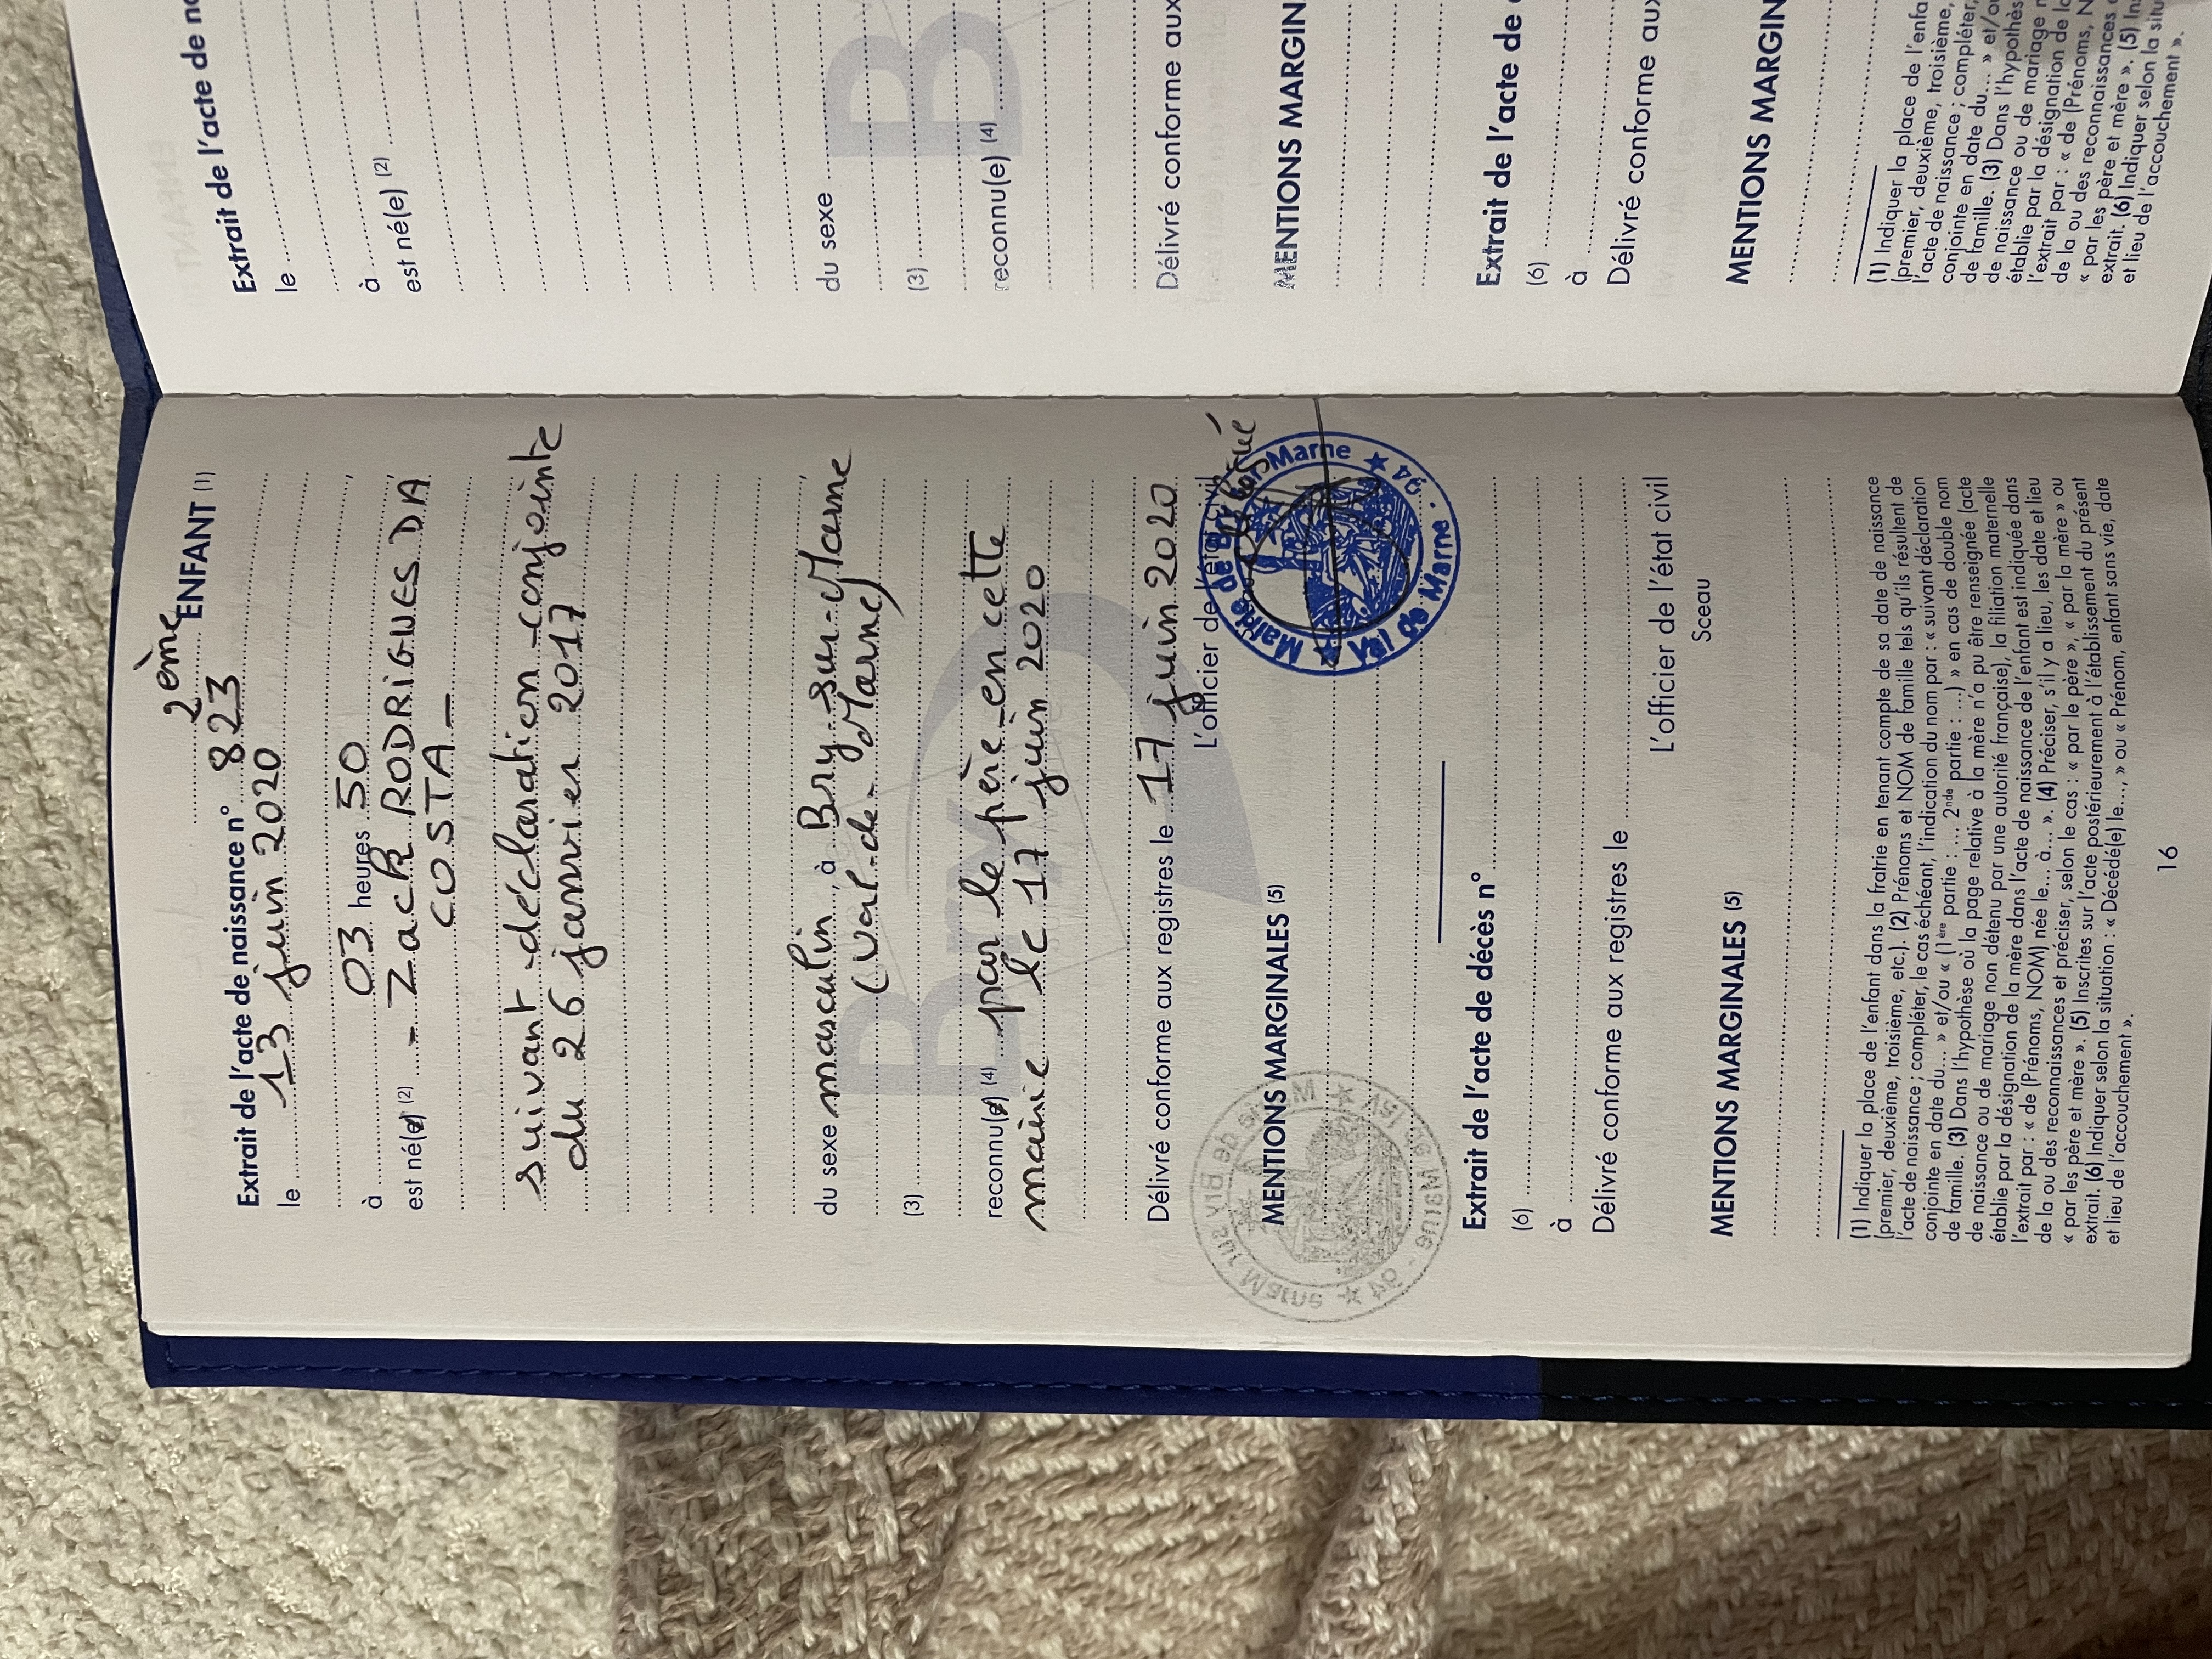 2ème ENFANT (1)
Extrait de l'acte de naissance n° 823
le 13 juin 2020
à 03 heures 50
est né(e) (2) - Zack RODRIGUES DA
COSTA -
suivant déclaration conjointe
du 26 janvier 2017
du sexe masculin, à Bry-sur-Marne
(3) (Val-de-Marne)
reconnu(e) (4) par le père en cette
mairie le 17 juin 2020
Délivré conforme aux registres le 17 juin 2020
L'officier de l'état civil
Mairie de Bry sur Marne ★ 94 · Val de Marne ★
MENTIONS MARGINALES (5)
Extrait de l'acte de décès n°
(6)
à
Délivré conforme aux registres le
L'officier de l'état civil
Sceau
MENTIONS MARGINALES (5)
(1) Indiquer la place de l'enfant dans la fratrie en tenant compte de sa date de naissance
(premier, deuxième, troisième, etc.). (2) Prénoms et NOM de famille tels qu'ils résultent de
l'acte de naissance ; compléter, le cas échéant, l'indication du nom par : « suivant déclaration
conjointe en date du... » et/ou « (1ère partie : ... 2nde partie : ...) » en cas de double nom
de famille. (3) Dans l'hypothèse où la page relative à la mère n'a pu être renseignée (acte
de naissance ou de mariage non détenu par une autorité française), la filiation maternelle
établie par la désignation de la mère dans l'acte de naissance de l'enfant est indiquée dans
l'extrait par : « de (Prénoms, NOM) née le... à... ». (4) Préciser, s'il y a lieu, les date et lieu
de la ou des reconnaissances et préciser, selon le cas : « par le père », « par la mère » ou
« par les père et mère ». (5) Inscrites sur l'acte postérieurement à l'établissement du présent
extrait. (6) Indiquer selon la situation : « Décédé(e) le..., » ou « Prénom, enfant sans vie, date
et lieu de l'accouchement ».
16
Extrait de l'acte de
le
à
est né(e) (2)
du sexe
(3)
reconnu(e) (4)
Délivré conforme aux
MENTIONS MARGIN
Extrait de l'acte de
(6)
à
Délivré conforme aux
MENTIONS MARGIN
(1) Indiquer la place de l'enfa
(premier, deuxième, troisième,
l'acte de naissance ; compléter,
conjointe en date du... » et/ou
de famille. (3) Dans l'hypothès
de naissance ou de mariage n
établie par la désignation de la
l'extrait par : « de (Prénoms, N
de la ou des reconnaissances
« par les père et mère ». (5) In
extrait. (6) Indiquer selon la situ
et lieu de l'accouchement ».